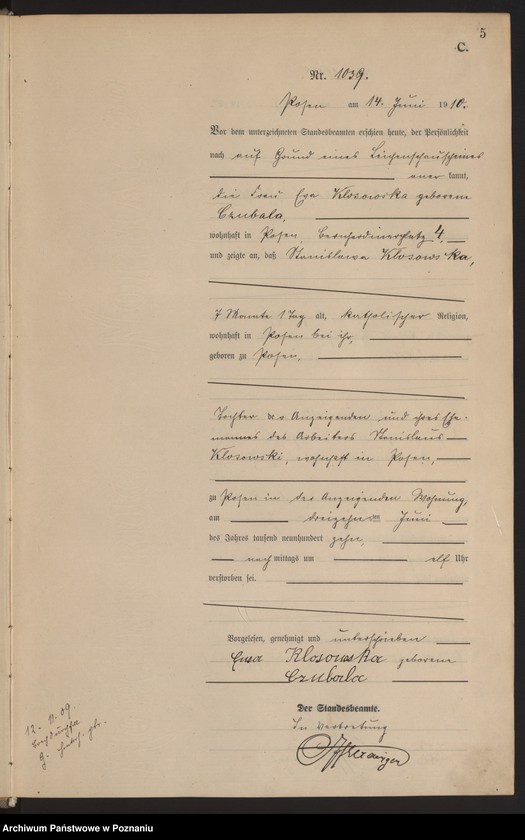 5
C.
Nr. 1039.
Posen am 14. Juni 1910.
Vor dem unterzeichneten Standesbeamten erschien heute, der Persönlichkeit
nach auf Grund eines Leichenschauscheines
anerkannt,
die Frau Eva Klosowska geborene
Czubala,
wohnhaft in Posen, Bernhardinerplatz 4,
und zeigte an, daß Stanislawa Klosowska,
7 Monate 1 Tag alt, katholischer Religion,
wohnhaft in Posen bei ihr,
geboren zu Posen,
Tochter der Anzeigenden und ihres Ehe-
mannes des Arbeiters Stanislaus
Klosowski, wohnhaft in Posen,
zu Posen in der Anzeigenden Wohnung,
am dreizehnten Juni
des Jahres tausend neunhundert zehn,
nachmittags um elf Uhr
verstorben sei.
Vorgelesen, genehmigt und unterschrieben
Ewa Klosowska geborene
Czubala
Der Standesbeamte.
In Vertretung
12. 11. 09.
Archiwum Państwowe w Poznaniu